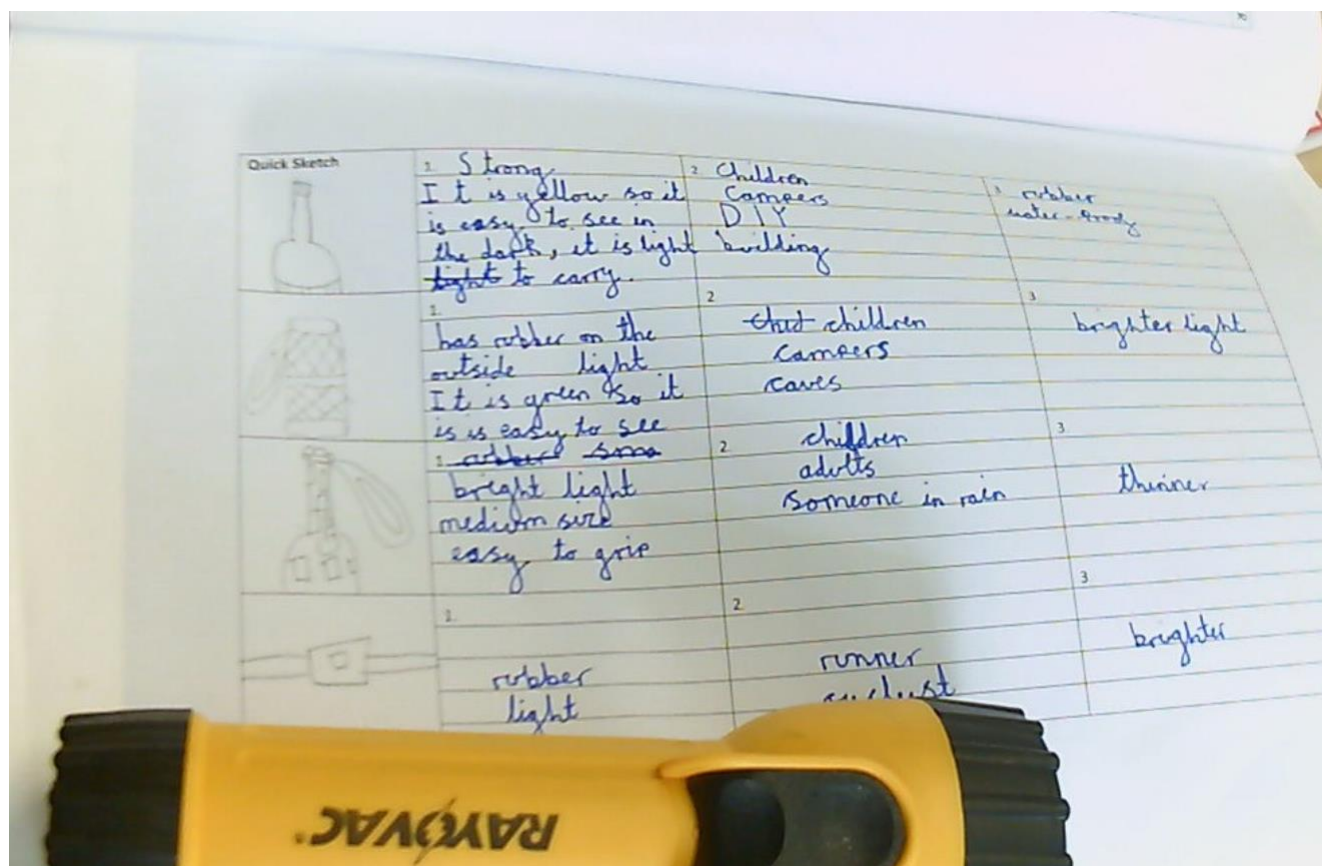 Quick Sketch
1. Strong
It is yellow so it
is easy to see in
the dark, it is light
light to carry.
2. Children
Campers
DIY
building
3. rubber
water-
1.
has rubber on the
outside light
It is green so it
is is easy to see
2
children
campers
caves
3
brighter light
1. rubber
bright light
medium size
easy to grip
2
children
adults
someone in rain
3
thinner
1.
rubber
light
2
runner
3
brighter
RAYOVAC